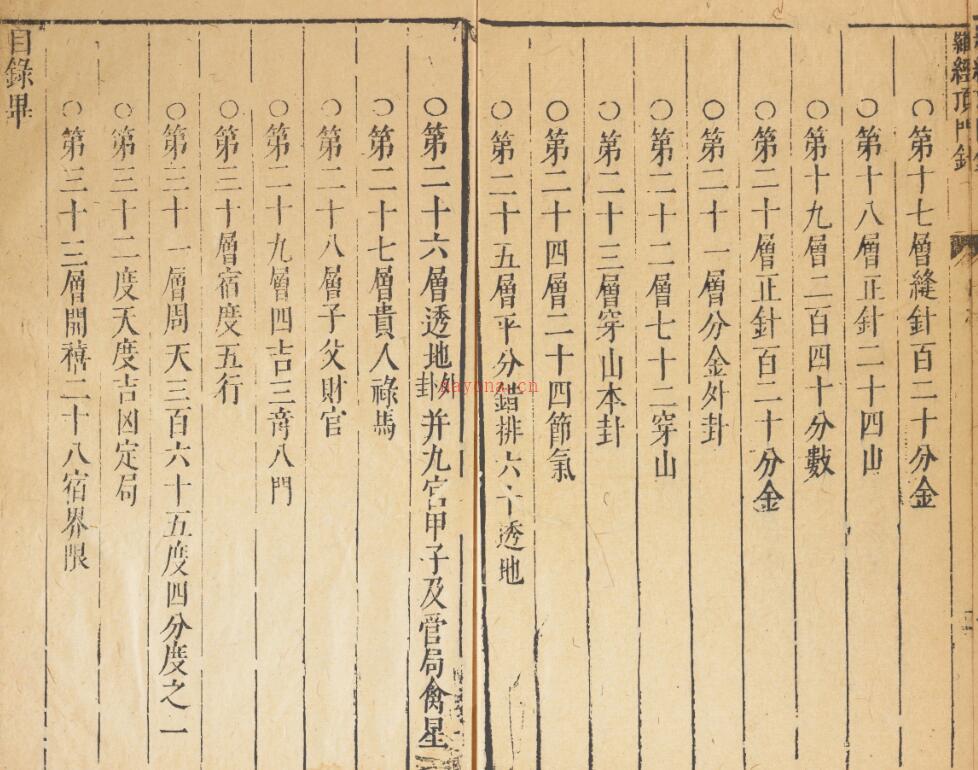 羅經頂門針
○第十七層縫針百二十分金
○第十八層正針二十四山
○第十九層二百四十分數
○第二十層正針百二十分金
○第二十一層分金外卦
○第二十二層七十二穿山
○第二十三層穿山本卦
○第二十四層二十四節氣
○第二十五層平分錯排六十透地
○第二十六層透地外卦并九宮甲子及營局禽星
○第二十七層貴人祿馬
○第二十八層子父財官
○第二十九層四吉三奇八門
○第三十層宿度五行
○第三十一層周天三百六十五度四分度之一
○第三十二度天度吉凶定局
○第三十三層開禧二十八宿界限
目錄畢